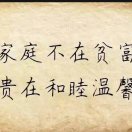 家庭不在贫富
贵在和睦温馨